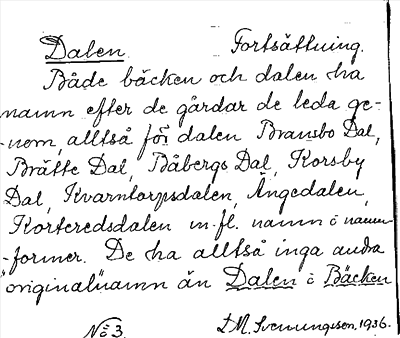 Dalen. Fortsättning.
Både bäcken och dalen ha
namn efter de gårdar de leda ge-
-nom, alltså för dalen Bransbo Dal,
Brätte Dal, Båbergs Dal, Korsby
Dal, Kvarntorpsdalen, Ängedalen,
Korteredsdalen m.fl. namn i namn-
-former. De ha alltså inga andra
"original"namn än Dalen i Bäcken
No 3. D.M. Svenungsson. 1936.